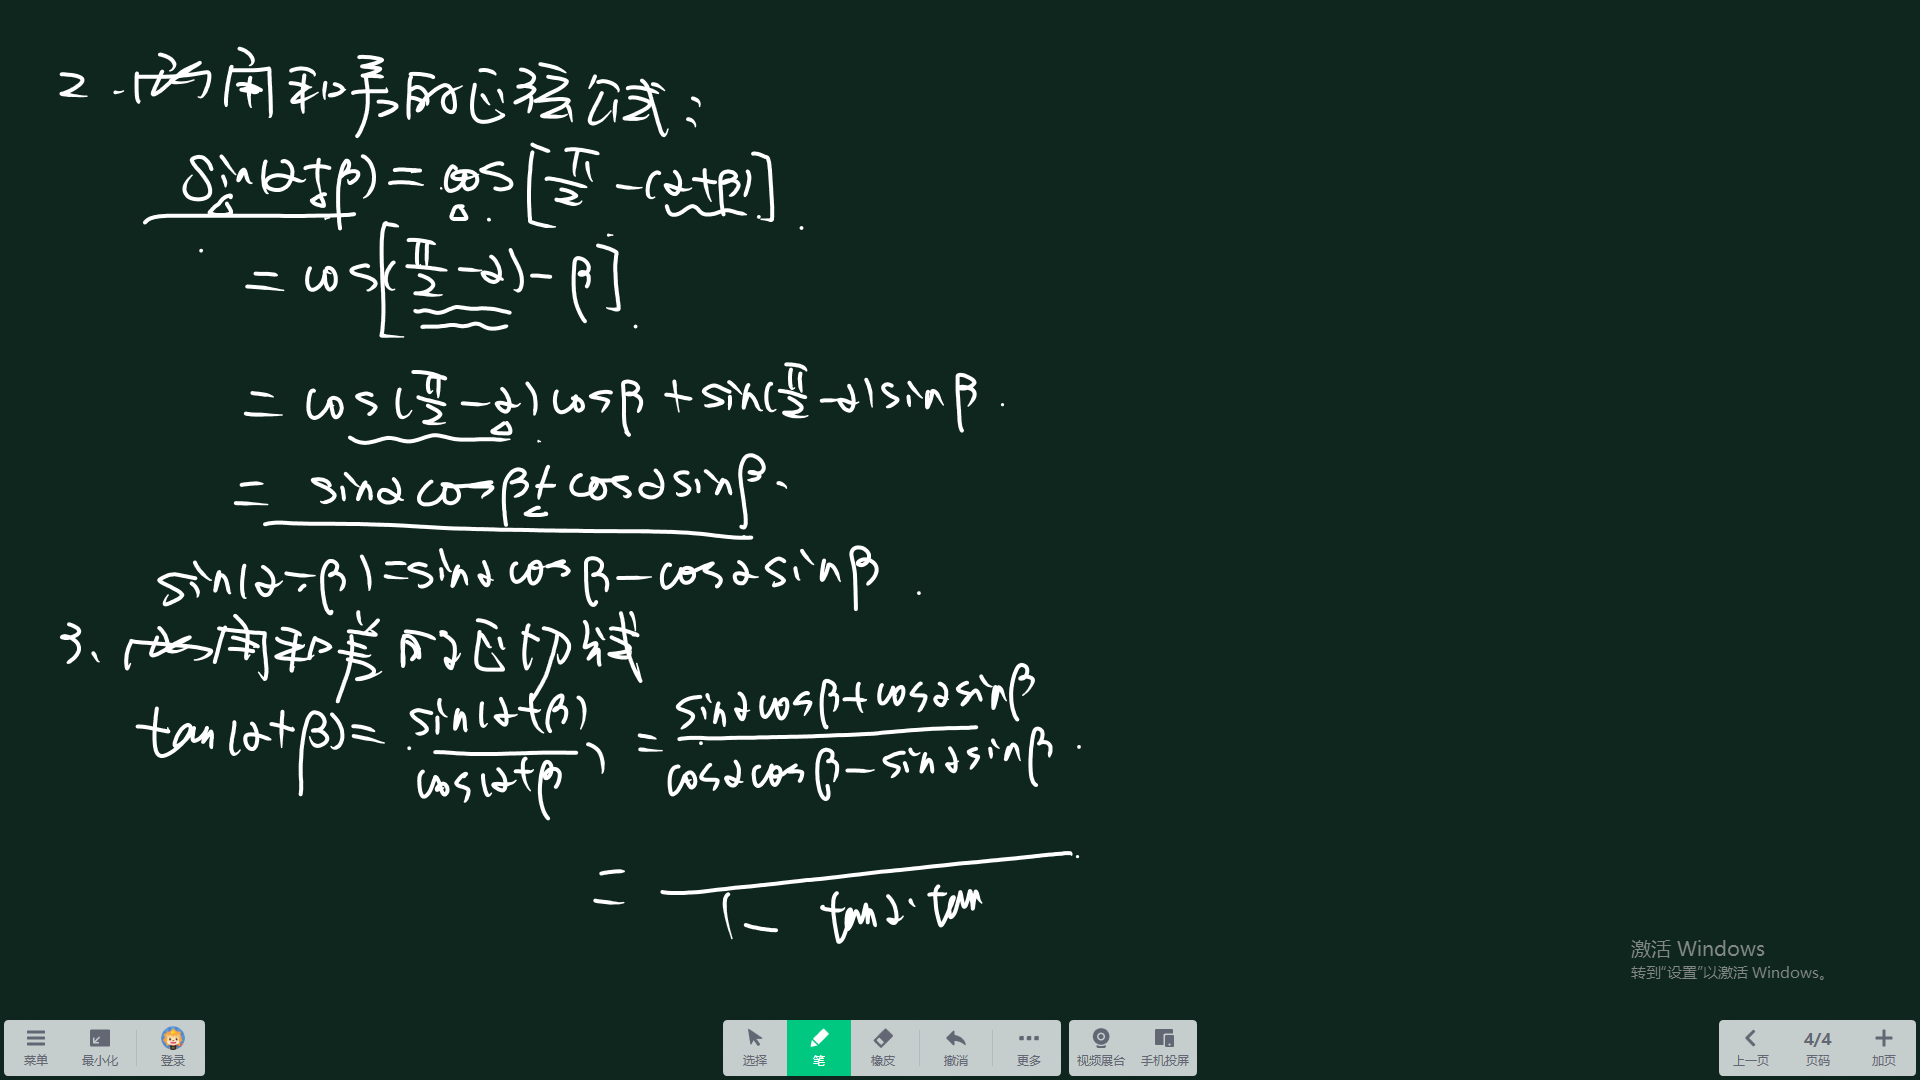 2.两角和差的正弦公式:
sin(α+β)=cos[π/2-(α+β)]
=cos[(π/2-α)-β]
=cos(π/2-α)cosβ+sin(π/2-α)sinβ.
=sinαcosβ+cosαsinβ.
sin(α-β)=sinαcosβ-cosαsinβ
3、两角和差的正切公式
tan(α+β)=sin(α+β)/cos(α+β)=(sinαcosβ+cosαsinβ)/(cosαcosβ-sinαsinβ)
= /(1-tanα·tan
激活 Windows
转到“设置”以激活 Windows。
菜单 最小化 登录 选择 笔 橡皮 撤消 更多 视频展台 手机投屏 上一页 4/4 页码 加页